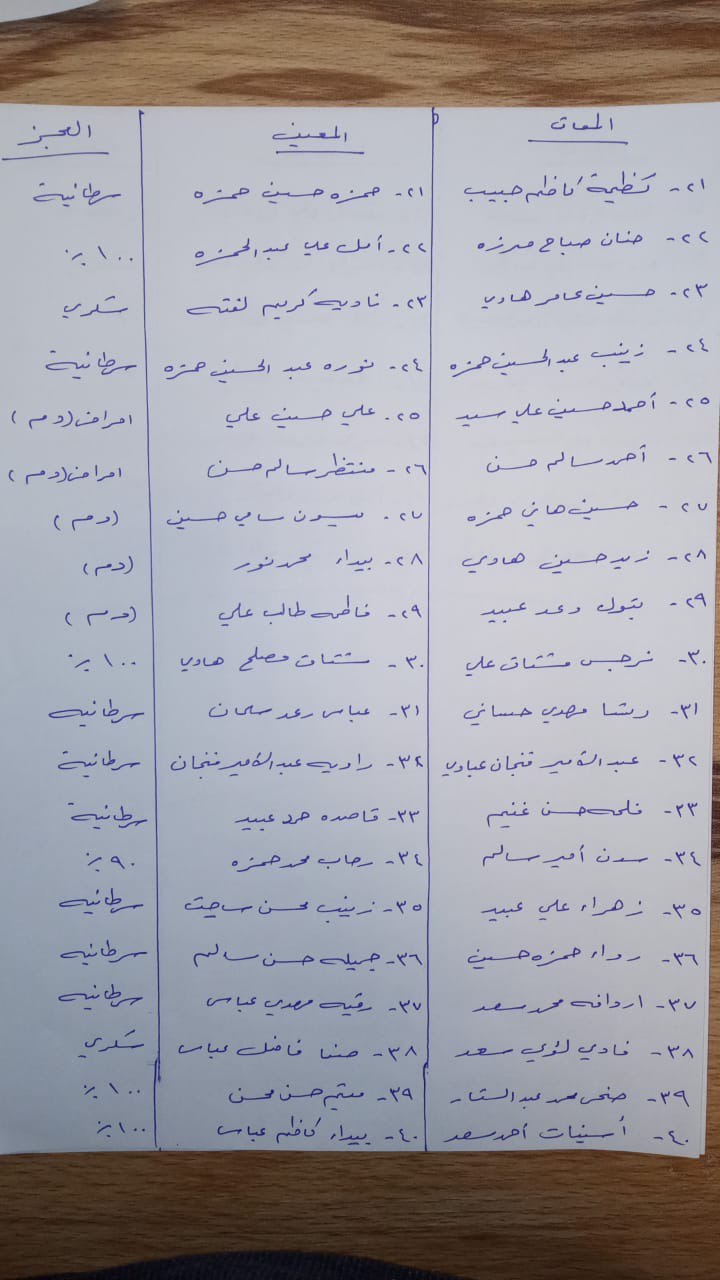 المعاق المعين العجز
٢١- كظيمة كاظم حبيب ٢١- حمزه حسين حمزه سرطانية
٢٢- حنان صباح مرزه ٢٢- أمل علي عبد الحمزه ١٠٠٪
٢٣- حسين عامر هادي ٢٣- ناديه كريم لفته سكري
٢٤- زينب عبد الحسين حمزه ٢٤- نوره عبد الحسين حمزه سرطانية
٢٥- أحمد حسين علي سيد ٢٥- علي حسين علي امراض (دم)
٢٦- أحمد سالم حسن ٢٦- منتظر سالم حسن امراض (دم)
٢٧- حسين هاني حمزه ٢٧- ميسون سامي حسين (دم)
٢٨- زيد حسين هادي ٢٨- بيداء محمد نور (دم)
٢٩- بتول وعد عبيد ٢٩- فاطمه طالب علي (دم)
٣٠- نرجس مشتاق علي ٣٠- مشتاق مصلح هادي ١٠٠٪
٣١- رشا مهدي حساني ٣١- عباس رعد سلمان سرطانيه
٣٢- عبد الأمير فنجان عبادي ٣٢- راويه عبد الأمير فنجان سرطانية
٣٣- فلحه حسن غنيم ٣٣- قاصده حمد عبيد سرطانية
٣٤- سدن أمير سالم ٣٤- رحاب محمد حمزه ٩٠٪
٣٥- زهراء علي عبيد ٣٥- زينب محسن سرطانيه
٣٦- رواء حمزه حسين ٣٦- جميله حسن سالم سرطانيه
٣٧- محمد سعد ٣٧- رقيه مهدي عباس سرطانيه
٣٨- فادي لؤي سعد ٣٨- فاضل عباس سكري
٣٩- محمد عبد الستار ٣٩- ميثم حسن محسن ١٠٠٪
٤٠- أحمد سعد ٤٠- بيداء كاظم عباس ١٠٠٪